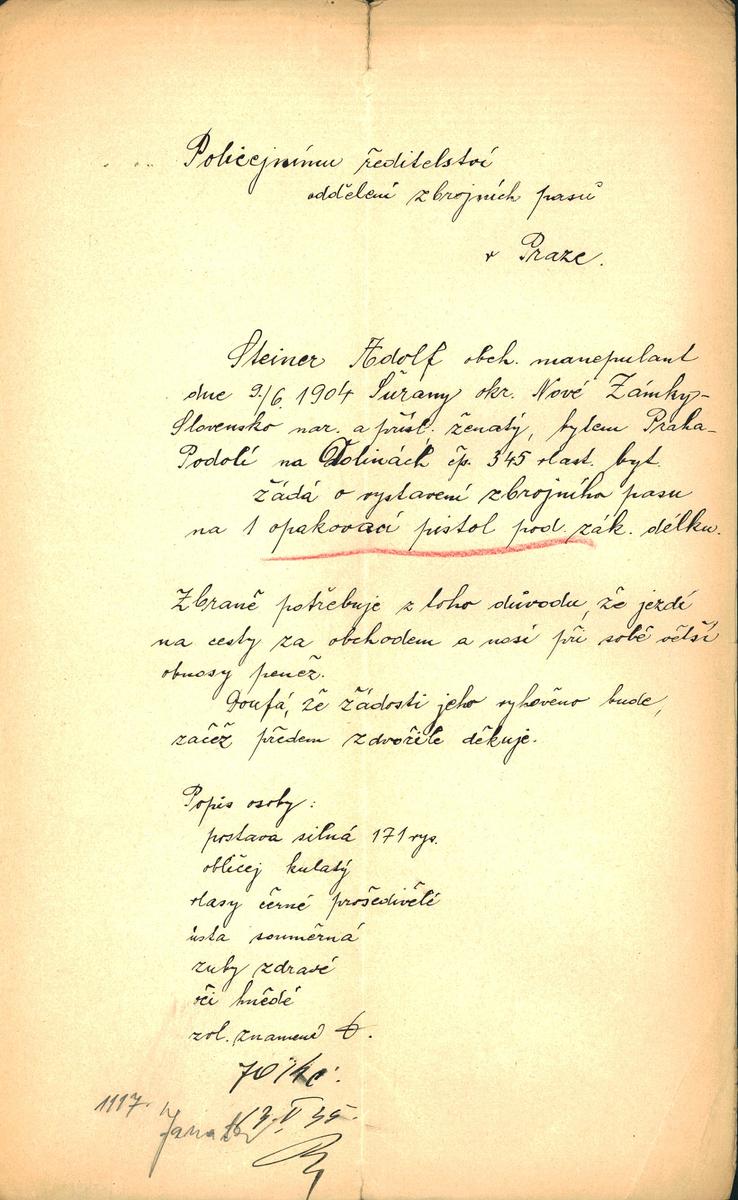 Policejnímu ředitelství
oddělení zbrojních pasů
v Praze.
Steiner Adolf obch. manepulant
dne 9./6. 1904 Šuřany okr. Nové Zámky-
Slovensko nar. a přísl. ženatý, bytem Praha-
Podolí na Dolinách čp. 345 vlast. byt.
žádá o vystavení zbrojního pasu
na 1 opakovací pistol pod. zák. délku.
Zbraně potřebuje z toho důvodu, že jezdí
na cesty za obchodem a nosí při sobě větší
obnosy peněz.
Doufá, že žádosti jeho vyhověno bude,
začež předem zdvořile děkuje.
Popis osoby:
postava silná 171 vys.
obličej kulatý
vlasy černé prošedivělé
ústa souměrná
zuby zdravé
oči hnědé
zvl. znamení
70 Kč.
1117.